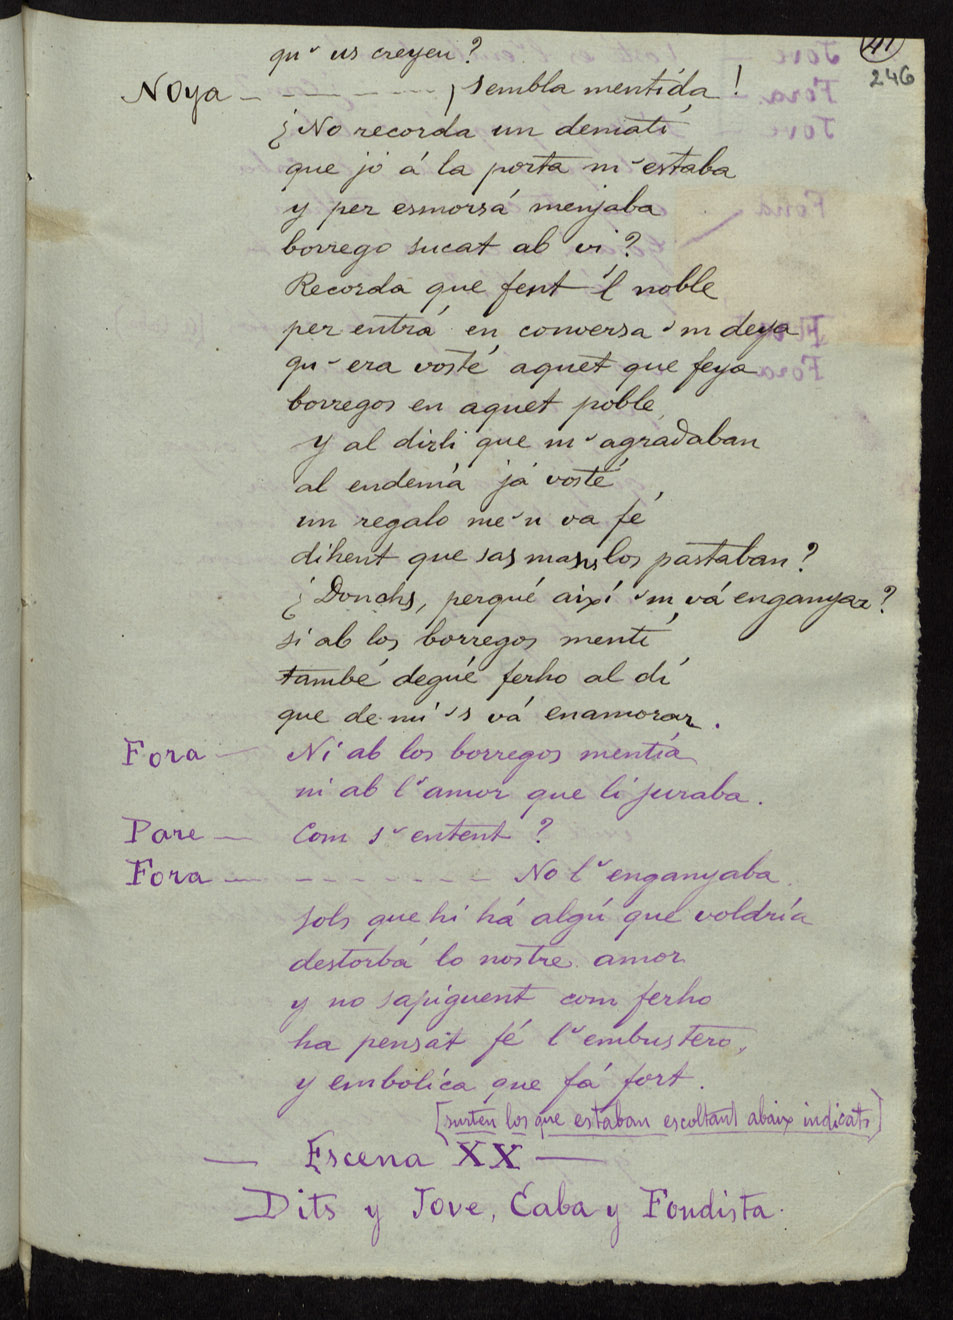 41
246
qu' us creyeu?
Noya - - - - - - - ¡Sembla mentida!
¿No recorda un dematí
que jó á la porta m' estaba
y per esmorsá menjaba
borrego sucat ab vi?
Recorda que fent 'l noble
per entrá en conversa 'm deya
qu' era vosté aquet que feya
borregos en aquet poble
y al dirli que m' agradaban
al endemá já vosté
un regalo me'n va fé
dihent que sas mans los pastaban?
¿Donchs, perqué així 'm vá enganyar?
si ab los borregos mentí
també degué ferho al dí
que de mí 's vá enamorar.
Fora — Ni ab los borregos mentía
ni ab l' amor que li juraba.
Pare — Com s' entent?
Fora — - - - - - - No l' enganyaba
sols que hi há algú que voldría
destorbá lo nostre amor
y no sapiguent com ferho
ha pensat fé l' embustero,
y embolica que fá fort.
[surten los que estaban escoltant abaix indicats]
— Escena XX —
Dits y Jove, Caba y Fondista.